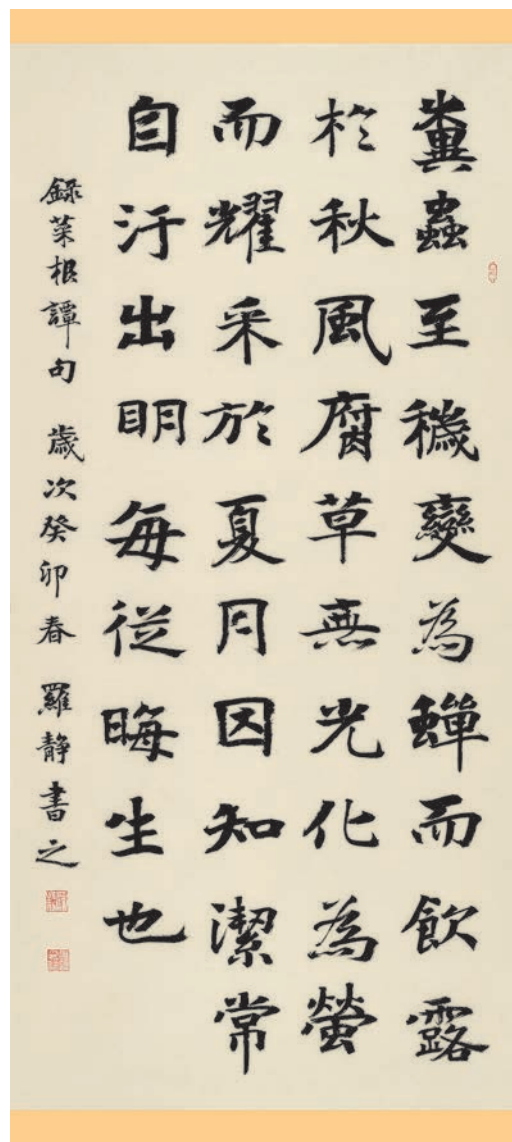 糞蟲至穢變為蟬而飲露
於秋風腐草無光化為螢
而耀采於夏月因知潔常
自汙出明每從晦生也
錄菜根譚句 歲次癸卯春 羅靜書之